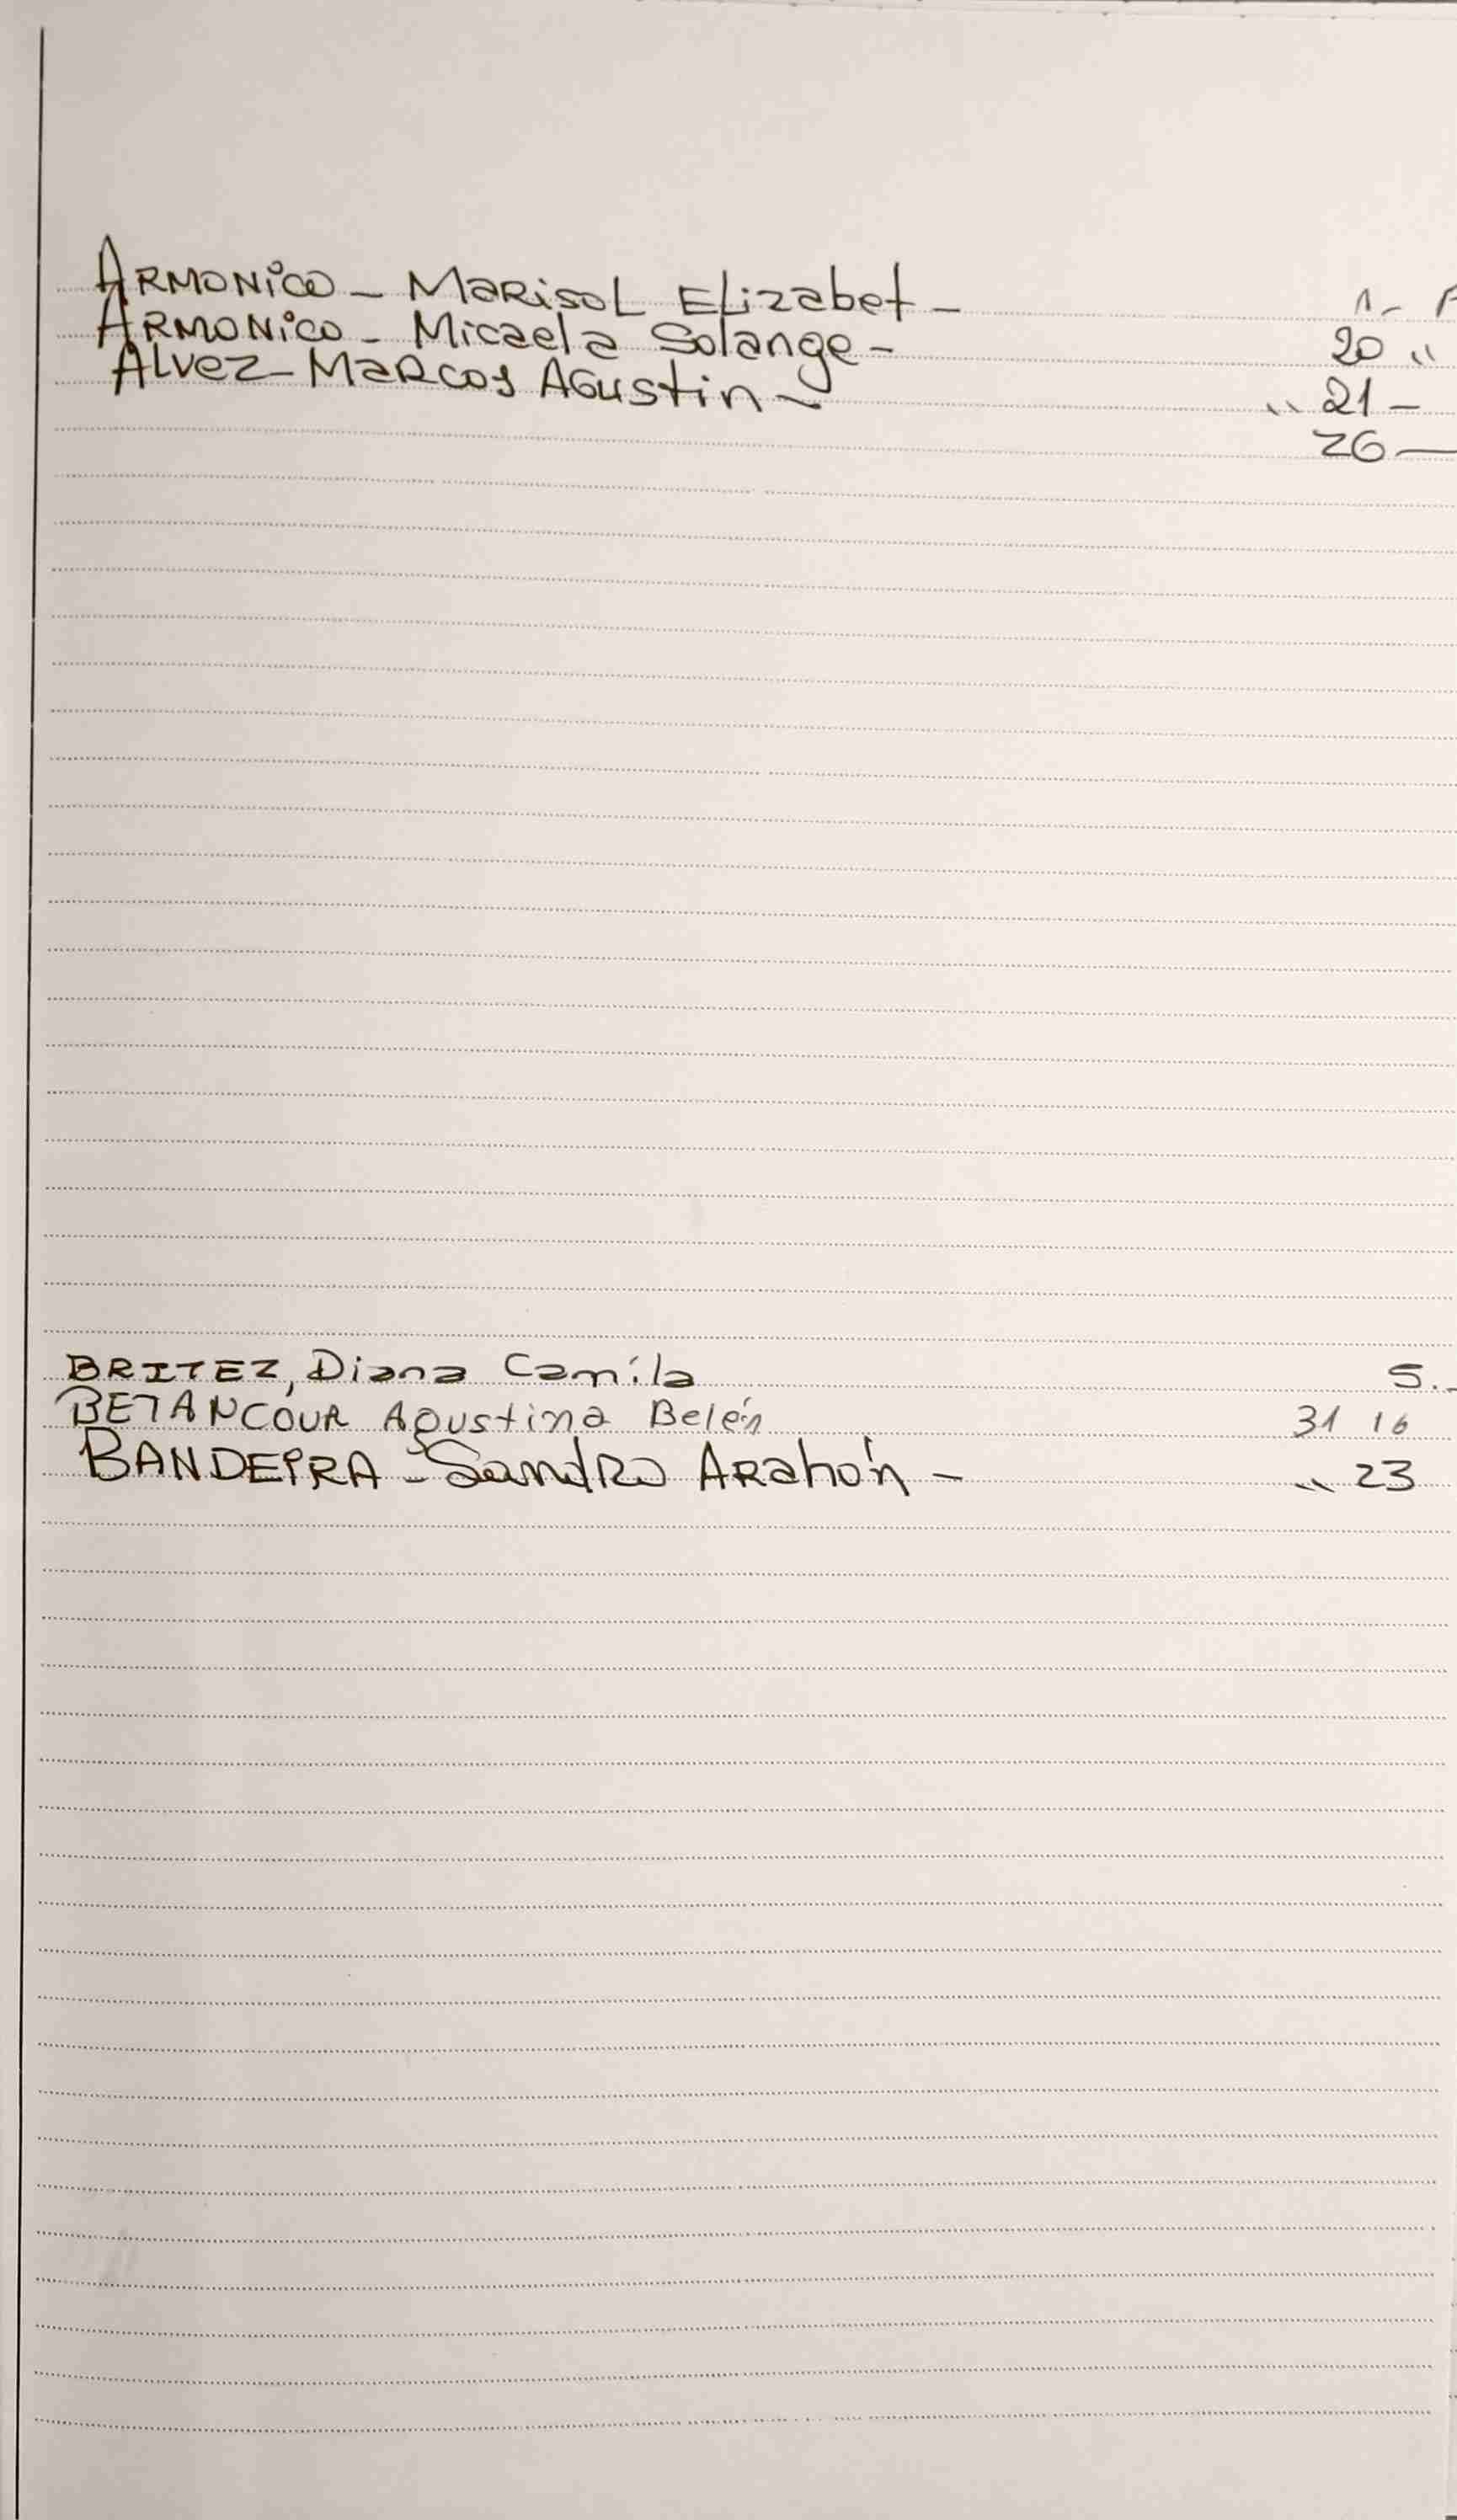 ARMONiCO - MaRisoL ELizabet - 1 -
ARMONiCO - Micaela Solange - 20 "
ALvez - MaRcos AGustin - " 21 -
26 —
BRITEZ, Diana Camila 5. -
BETANCOUR Agustina Belén 31 16
BANDEIRA - SandRo ARahón - " 23